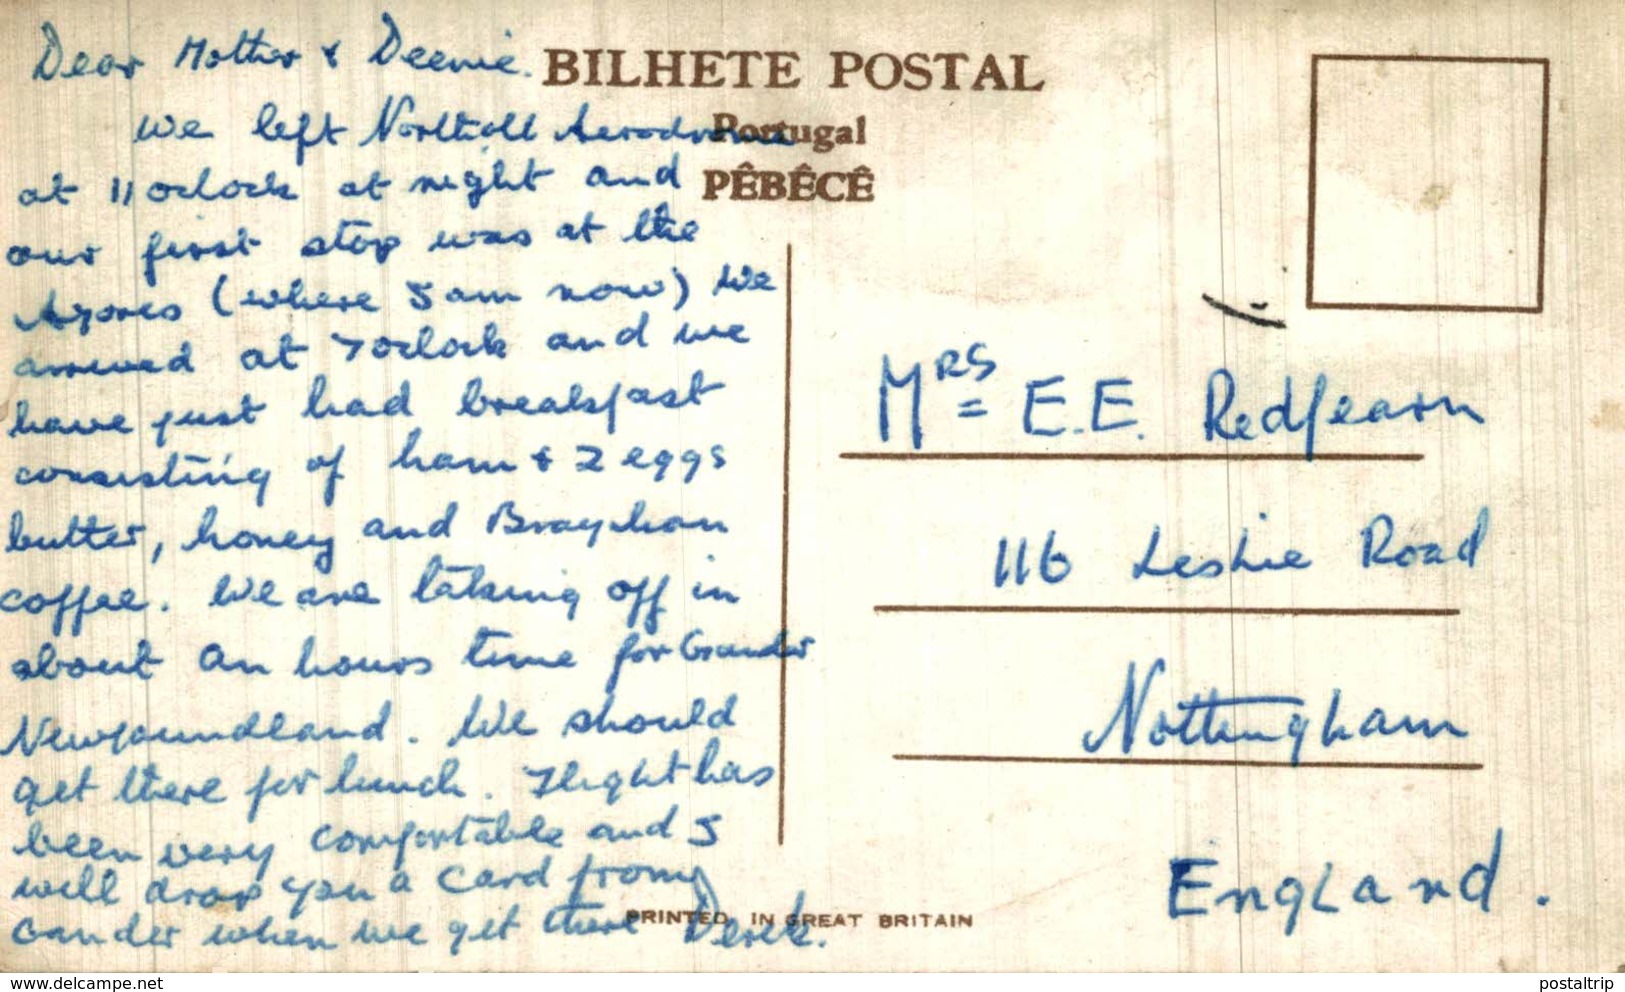 Dear Mother & Deenie.
We left Northolt Aerodrome
at 11 oclock at night and
our first stop was at the
Azores (where I am now) We
arrived at 7 oclock and we
have just had breakfast
consisting of ham & 2 eggs
butter, honey and
coffee. We are taking off in
about an hours time for Gander
Newfoundland. We should
get there for lunch. Flight has
been very comfortable and I
will drop you a card from
Gander when we get there Derek.
BILHETE POSTAL
Portugal
PÊBÊCÊ
Mrs E.E. Redfearn
116 Leslie Road
Nottingham
England.
PRINTED IN GREAT BRITAIN
Delcampe.net
postaltrip